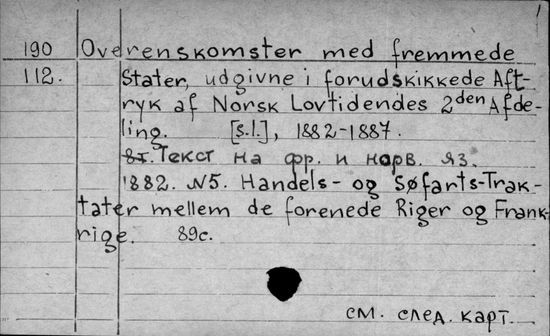 1
190 Overenskomster med fremmede
112. Stater, udgivne i forudskikkede Aft-
ryk af Norsk Lovtidendes 2den Afde-
ling. [s.l.], 1882-1887.
8т. Текст на фр. и норв. яз.
1882. N5. Handels- og Søfarts-Trak-
tater mellem de forenede Riger og Frank-
rige. 89с.
см. след. карт.